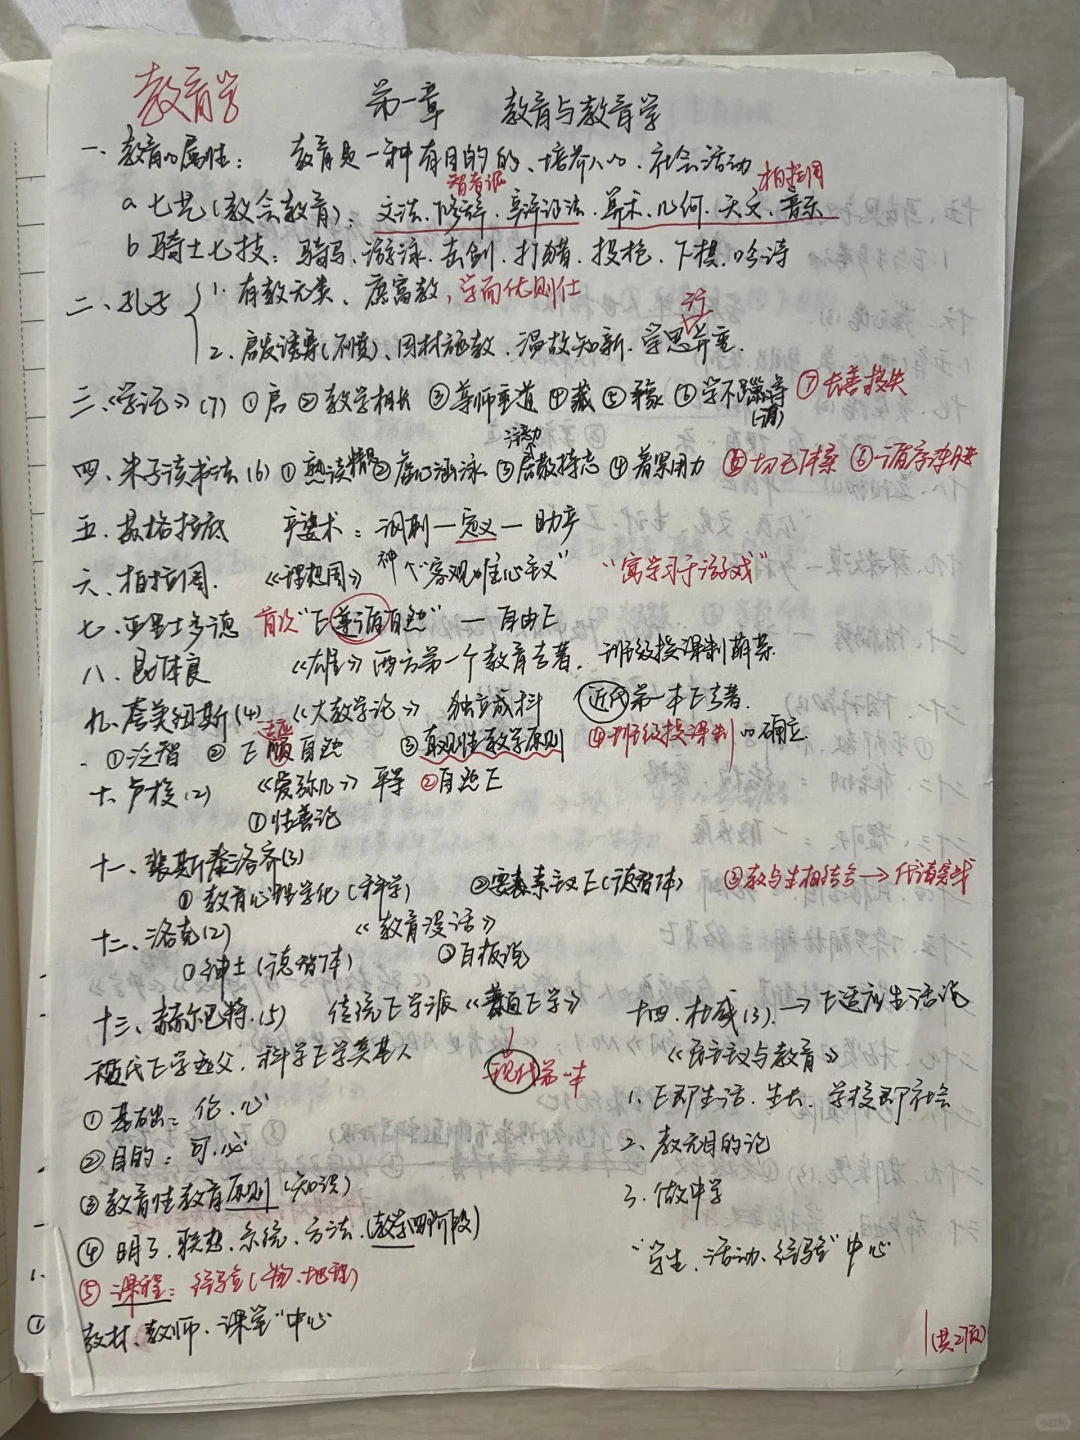 教育学
第一章 教育与教育学
一、教育的属性: 教育是一种有目的的、培养人的、社会活动
智者派 柏拉图
a 七艺(教会教育): 文法、修辞、辩证法、算术、几何、天文、音乐
b 骑士七技: 骑马、游泳、击剑、打猎、投枪、下棋、吟诗
二、孔子 1. 有教无类、庶富教,学而优则仕
行
2. 启发诱导(不愤)、因材施教、温故知新、学思并重.
三、《学记》(7) ①启 ②教学相长 ③尊师重道 ④藏 ⑤豫 ⑥学不躐等 ⑦长善救失
活动
四、朱子读书法(6) ①熟读精思 ②虚心涵泳 ③居敬持志 ④着紧用力 ⑤切己体察 ⑥循序渐进
五. 苏格拉底 产婆术: 讽刺—定义—助产
六、柏拉图. 《理想国》 神个"客观唯心主义" "寓学习于游戏"
七、亚里士多德 首次"E遵循自然" — 自由E
八、昆体良 《雄》西方第一个教育专著、班级授课制萌芽.
九、夸美纽斯(4) 《大教学论》 独立成科 近代第一本E专著.
①泛智 ②E顺自然 ③直观性教学原则 ④班级授课制的确立
十、卢梭(2) 《爱弥儿》 ②自然E
①性善论
十一、裴斯泰洛齐(3)
①教育心理学化(科学) ②要素主义E(德智体)
十二、洛克(2) 《教育漫话》
①绅士(德智体) ②白板说
十三、赫尔巴特.(5) 传统E学派《普通E学》
现代第一本
代E学之父、科学E学奠基人
①基础: 伦、心
②目的: 可、必
③教育性教育原则(知识)
④明了、联想、系统、方法.(教学四阶段)
⑤课程: 经验(物、地理)
教材、教师、课堂"中心
十四、杜威(3). → E适应生活论
《民主主义与教育》
1. E即生活、生长、学校即社会
2、教无目的论
3、做中学
"学生、活动、经验"中心
(共27页)
小红书